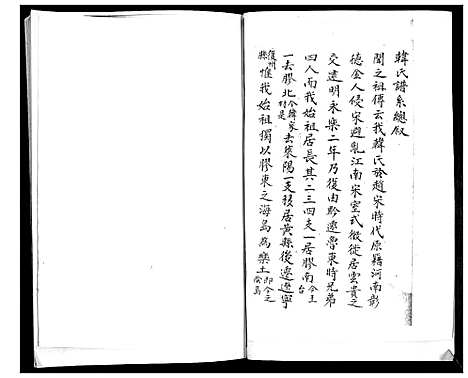 韓氏譜系總叙
聞之祖傳云我韓氏於趙宋時代原籍河南彰
德金人侵宋避亂江南宋室式微徙居雲貴之
交迨明永樂二年乃復由黔遷魯東時兄弟
四人而我始祖居長其二三四支一居膠南今王台
一去膠北今韓家村是一去萊陽一支移居黃縣後遷遼寧
復州縣惟我始祖獨以膠東之海島為樂土即今之島